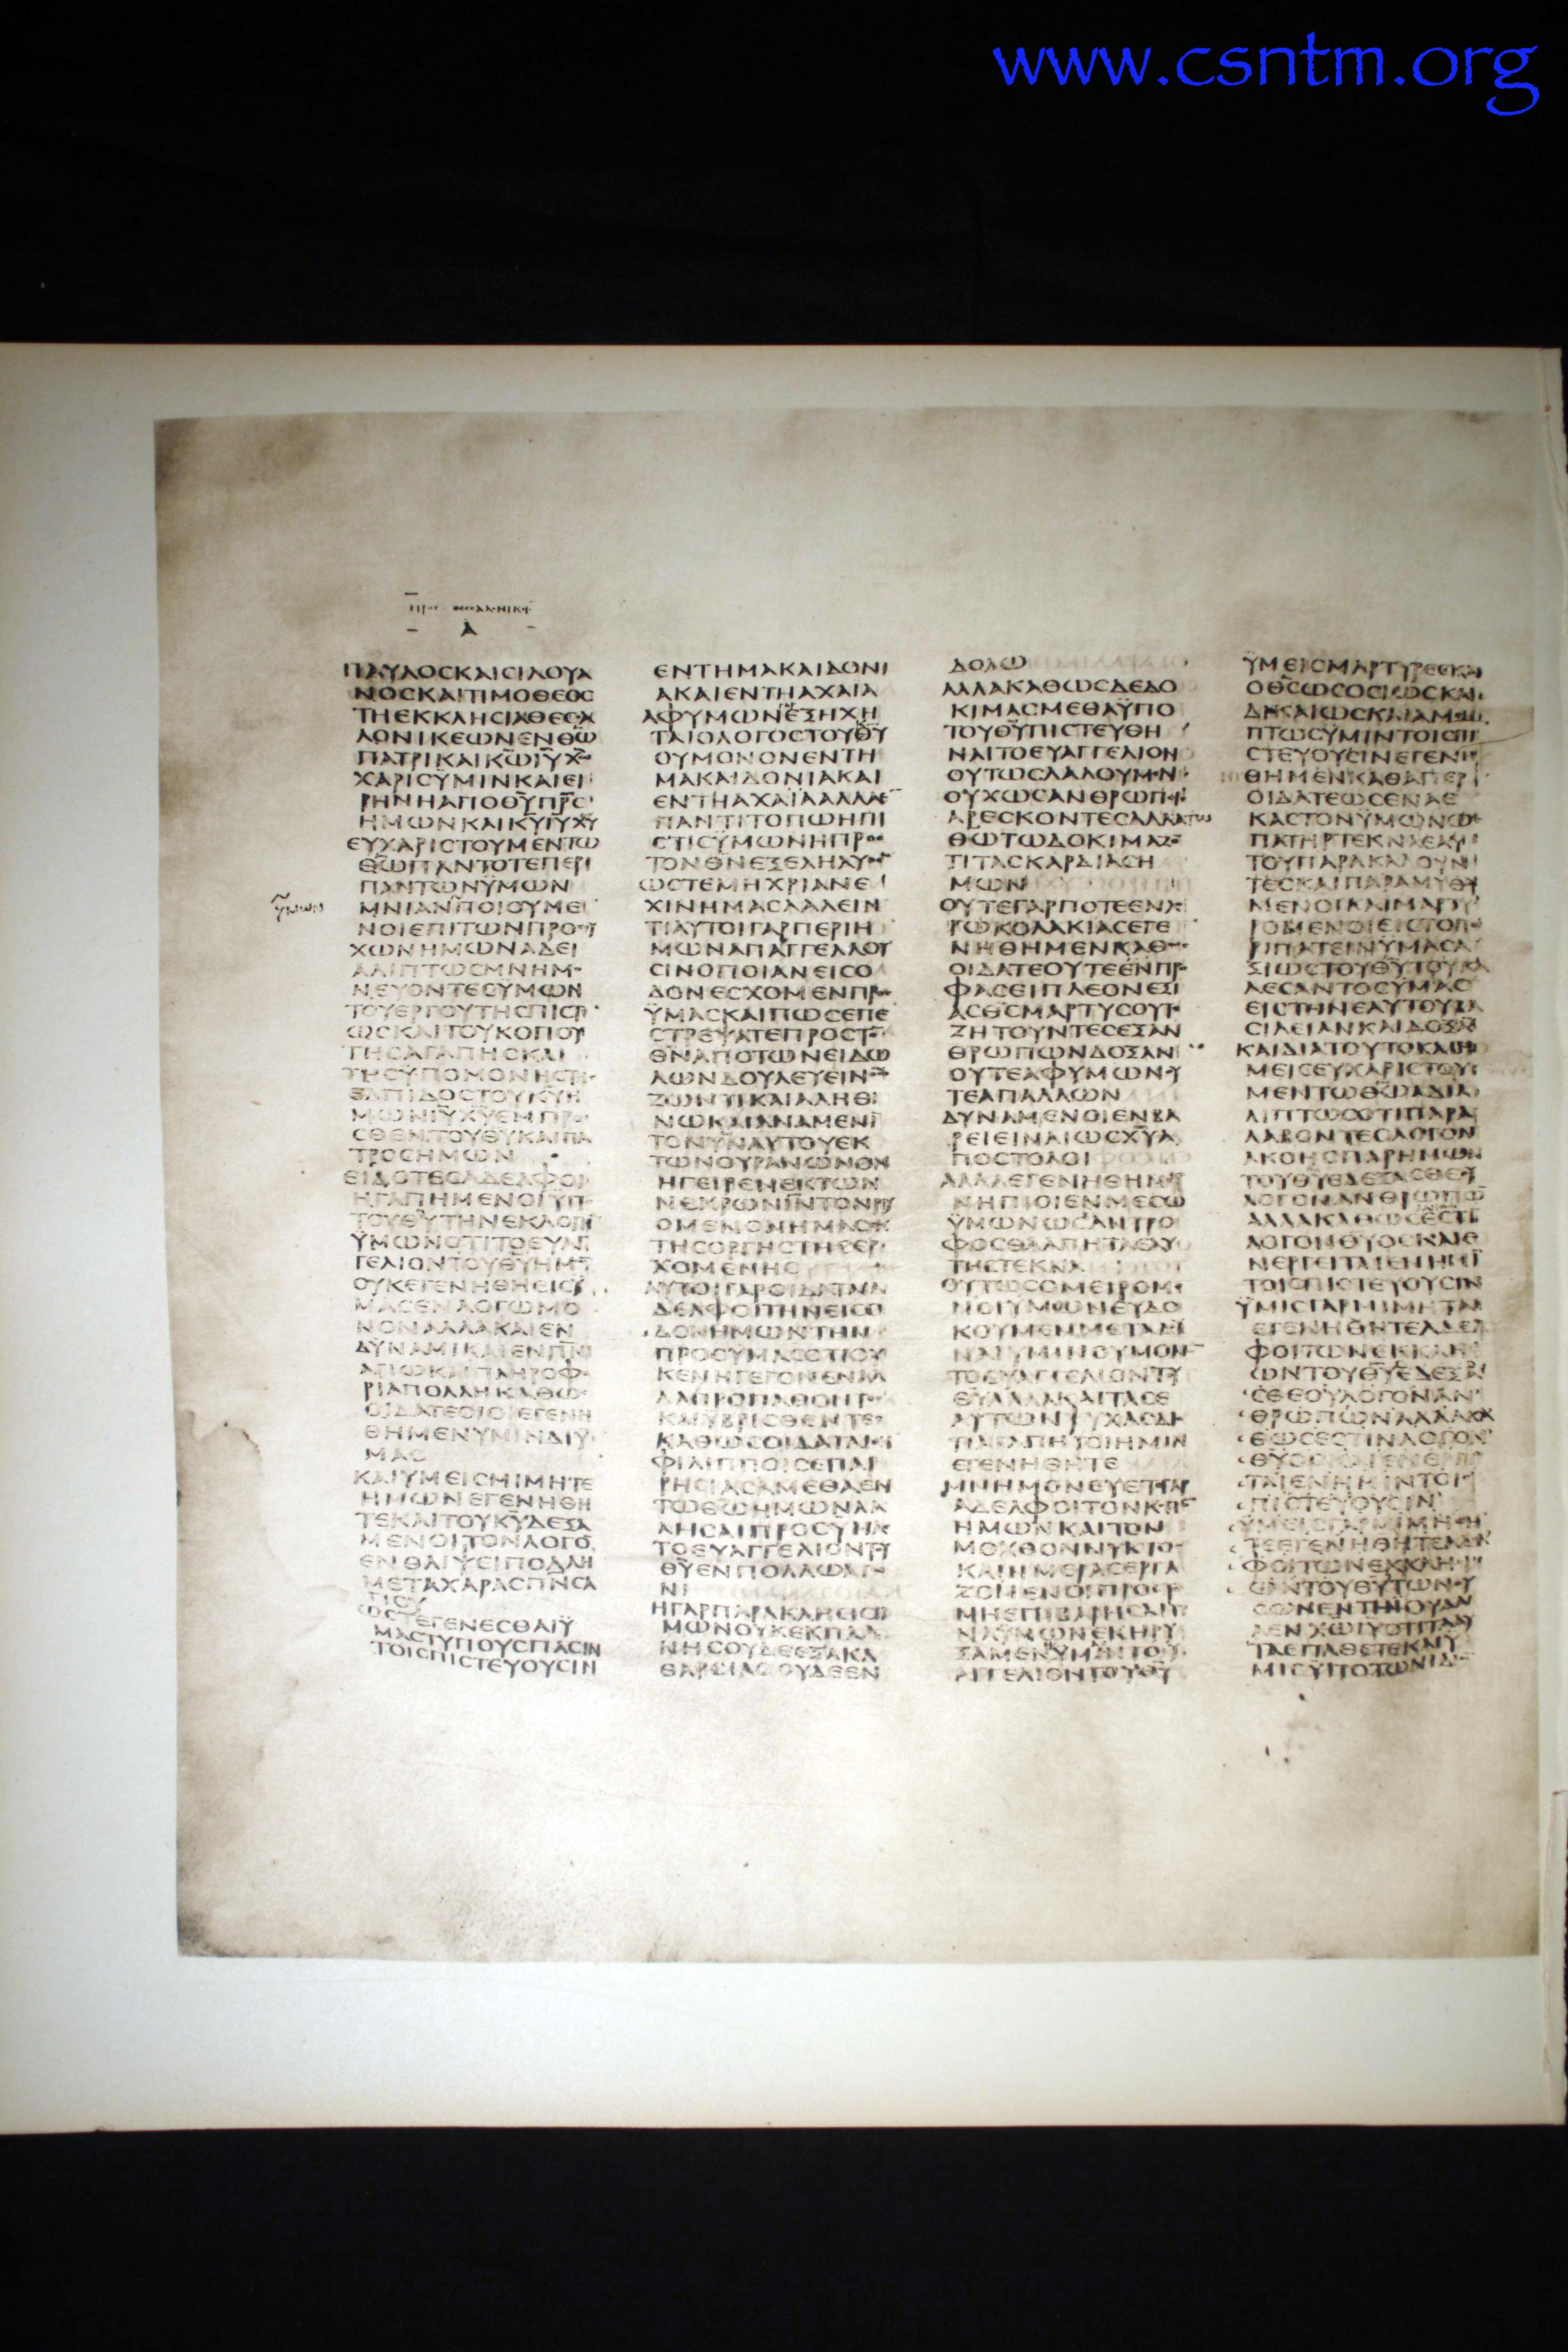 www.csntm.org
Α
ΠΑΥΛΟСΚΑΙСΙΛΟΥΑ
ΝΟСΚΑΙΤΙΜΟΘΕΟС
ΤΗΕΚΚΛΗСΙΑΘΕСΑ
ΛΟΝΙΚΕΩΝΕΝΘΩ
ΠΑΤΡΙΚΑΙΚΩΙΥΧΩ
ΧΑΡΙСΫΜΙΝΚΑΙΕΙ
ΡΗΝΗΑΠΟΘΥΠΡС
ΗΜΩΝΚΑΙΚΥΙΥΧΥ
ΕΥΧΑΡΙСΤΟΥΜΕΝΤΩ
ΘΩΠΑΝΤΟΤΕΠΕΡΙ
ΠΑΝΤΩΝΫΜΩΝ
ΫΜΩΝ
ΜΝΙΑΝΠΟΙΟΥΜΕ
ΝΟΙΕΠΙΤΩΝΠΡΟΕΥ
ΧΩΝΗΜΩΝΑΔΕΙ
ΑΛΙΠΤΩСΜΝΗΜΟ
ΝΕΥΟΝΤΕСΥΜΩΝ
ΤΟΥΕΡΓΟΥΤΗСΠΙСΤΕ
ΩСΚΑΙΤΟΥΚΟΠΟΥ
ΤΗСΑΓΑΠΗСΚΑΙ
ΤΗСΫΠΟΜΟΝΗСΤΗС
ΕΛΠΙΔΟСΤΟΥΚΥΗ
ΜΩΝΙΥΧΥΕΜΠΡΟ
СΘΕΝΤΟΥΘΥΚΑΙΠΑ
ΤΡΟСΗΜΩΝ
ΕΙΔΟΤΕСΑΔΕΛΦΟΙ
ΗΓΑΠΗΜΕΝΟΙΥΠΟ
ΤΟΥΘΥΤΗΝΕΚΛΟΓΗ
ΫΜΩΝΟΤΙΤΟΕΥΑΓ
ΓΕΛΙΟΝΤΟΥΘΥΗΜΩ
ΟΥΚΕΓΕΝΗΘΗΕΙСΫ
ΜΑСΕΝΛΟΓΩΜΟ
ΝΟΝΑΛΛΑΚΑΙΕΝ
ΔΥΝΑΜΙΚΑΙΕΝΠΝΙ
ΑΓΙΩΚΑΙΠΛΗΡΟΦΟ
ΡΙΑΠΟΛΛΗΚΑΘΩС
ΟΙΔΑΤΕΟΙΟΙΕΓΕΝΗ
ΘΗΜΕΝΥΜΙΝΔΙΫ
ΜΑС
ΚΑΙΥΜΕΙСΜΙΜΗΤΕ
ΗΜΩΝΕΓΕΝΗΘΗ
ΤΕΚΑΙΤΟΥΚΥΔΕΞΑ
ΜΕΝΟΙΤΟΝΛΟΓΟ
ΕΝΘΛΙΨΕΙΠΟΛΛΗ
ΜΕΤΑΧΑΡΑСΠΝСΑ
ΓΙΟΥ
ΩСΤΕΓΕΝΕСΘΑΙΫ
ΜΑСΤΥΠΟΥСΠΑСΙΝ
ΤΟΙСΠΙСΤΕΥΟΥСΙΝ
ΕΝΤΗΜΑΚΑΙΔΟΝΙ
ΑΚΑΙΕΝΤΗΑΧΑΙΑ
ΑΦΥΜΩΝΕΞΗΧΗ
ΤΑΙΟΛΟΓΟСΤΟΥΘΥ
ΟΥΜΟΝΟΝΕΝΤΗ
ΜΑΚΑΙΔΟΝΙΑΚΑΙ
ΕΝΤΗΑΧΑΪΑΑΛΛΑΕ
ΠΑΝΤΙΤΟΠΩΗΠΙ
СΤΙСΫΜΩΝΗΠΡΟС
ΤΟΝΘΝΕΞΕΛΗΛΥΘΕ
ΩСΤΕΜΗΧΡΙΑΝΕ
ΧΙΝΗΜΑСΛΑΛΕΙΝ
ΤΙΑΥΤΟΙΓΑΡΠΕΡΙΗ
ΜΩΝΑΠΑΓΓΕΛΛΟΥ
СΙΝΟΠΟΙΑΝΕΙСΟ
ΔΟΝΕСΧΟΜΕΝΠΡΟС
ΫΜΑСΚΑΙΠΩСΕΠΕ
СΤΡΕΨΑΤΕΠΡΟСΤΟ
ΘΝΑΠΟΤΩΝΕΙΔΩ
ΛΩΝΔΟΥΛΕΥΕΙΝΘΩ
ΖΩΝΤΙΚΑΙΑΛΗΘΙ
ΝΩΚΑΙΑΝΑΜΕΝΙ
ΤΟΝΥΝΑΥΤΟΥΕΚ
ΤΩΝΟΥΡΑΝΩΝΟΝ
ΗΓΕΙΡΕΝΕΚΤΩΝ
ΝΕΚΡΩΝΙΝΤΟΝΡΥ
ΟΜΕΝΟΝΗΜΑСΕΚ
ΤΗСΟΡΓΗСΤΗСΕΡ
ΧΟΜΕΝΗС
ΑΥΤΟΙΓΑΡΟΙΔΑΤΑΙΑ
ΔΕΛΦΟΙΤΗΝΕΙСΟ
ΔΟΝΗΜΩΝΤΗΝ
ΠΡΟСΥΜΑСΟΤΙΟΥ
ΚΕΝΗΓΕΓΟΝΕΝΑΛ
ΛΑΠΡΟΠΑΘΟΝΤΕС
ΚΑΙΥΒΡΙСΘΕΝΤΕС
ΚΑΘΩСΟΙΔΑΤΑΙΕΝ
ΦΙΛΙΠΠΟΙСΕΠΑΡ
ΡΗСΙΑСΑΜΕΘΑΕΝ
ΤΩΘΩΗΜΩΝΛΑ
ΛΗСΑΙΠΡΟСΥΜΑС
ΤΟΕΥΑΓΓΕΛΙΟΝΤΟΥ
ΘΥΕΝΠΟΛΛΩΑΓΩ
ΝΙ
ΗΓΑΡΠΑΡΑΚΛΗСΙСΗ
ΜΩΝΟΥΚΕΚΠΛΑ
ΝΗСΟΥΔΕΕΞΑΚΑ
ΘΑΡСΙΑСΟΥΔΕΕΝ
ΔΟΛΩ
ΑΛΛΑΚΑΘΩСΔΕΔΟ
ΚΙΜΑСΜΕΘΑΫΠΟ
ΤΟΥΘΥΠΙСΤΕΥΘΗ
ΝΑΙΤΟΕΥΑΓΓΕΛΙΟΝ
ΟΥΤΩСΛΑΛΟΥΜΕΝ
ΟΥΧΩСΑΝΘΡΩΠΟΙ
ΑΡΕСΚΟΝΤΕСΑΛΛΑΤΩ
ΘΩΤΩΔΟΚΙΜΑΖΟ
ΤΙΤΑСΚΑΡΔΙΑСΗ
ΜΩΝ
ΟΥΤΕΓΑΡΠΟΤΕΕΝΛΟ
ΓΩΚΟΛΑΚΙΑСΕΓΕ
ΝΗΘΗΜΕΝΚΑΘΩС
ΟΙΔΑΤΕΟΥΤΕΕΝΠΡΟ
ΦΑСΕΙΠΛΕΟΝΕΞΙ
ΑСΘСΜΑΡΤΥСΟΥΤΕ
ΖΗΤΟΥΝΤΕСΕΞΑΝ
ΘΡΩΠΩΝΔΟΞΑΝ
ΟΥΤΕΑΦΥΜΩΝΟΥ
ΤΕΑΠΑΛΛΩΝ
ΔΥΝΑΜΕΝΟΙΕΝΒΑ
ΡΕΙΕΙΝΑΙΩСΧΥΑ
ΠΟСΤΟΛΟΙ
ΑΛΛΑΕΓΕΝΗΘΗΜΕΝ
ΝΗΠΙΟΙΕΝΜΕСΩ
ΫΜΩΝΩСΑΝΤΡΟ
ΦΟСΘΑΛΠΗΤΑΕΑΥ
ΤΗСΤΕΚΝΑ
ΟΥΤΩСΟΜΕΙΡΟΜΕ
ΝΟΙΥΜΩΝΕΥΔΟ
ΚΟΥΜΕΝΜΕΤΑΔΙ
ΝΑΙΥΜΙΝΟΥΜΟΝΟ
ΤΟΕΥΑΓΓΕΛΙΟΝΤΟΥ
ΘΥΑΛΛΑΚΑΙΤΑСΕ
ΑΥΤΩΝΨΥΧΑСΔΙ
ΤΙΑΓΑΠΗΤΟΙΗΜΙΝ
ΕΓΕΝΗΘΗΤΕ
ΜΝΗΜΟΝΕΥΕΤΕΓΑΡ
ΑΔΕΛΦΟΙΤΟΝΚΟΠΟ
ΗΜΩΝΚΑΙΤΟΝ
ΜΟΧΘΟΝΝΥΚΤΟС
ΚΑΙΗΜΕΡΑСΕΡΓΑ
ΖΟΜΕΝΟΙΠΡΟСΤΟ
ΜΗΕΠΙΒΑΡΗСΑΙΤΙ
ΝΑΥΜΩΝΕΚΗΡΥ
ΞΑΜΕΝΥΜΙΝΤΟΕΥ
ΑΓΓΕΛΙΟΝΤΟΥΘΥ
ΫΜΕΙСΜΑΡΤΥΡΕСΚΑΙ
ΟΘСΩСΟСΙΩСΚΑΙ
ΔΙΚΑΙΩСΚΑΙΑΜΕΜ
ΠΤΩСΫΜΙΝΤΟΙСΠΙ
СΤΕΥΟΥСΙΝΕΓΕΝΗ
ΘΗΜΕΝΚΑΘΑΠΕΡ
ΟΙΔΑΤΕΩСΕΝΑΕ
ΚΑСΤΟΝΫΜΩΝΩС
ΠΑΤΗΡΤΕΚΝΑΕΑΥ
ΤΟΥΠΑΡΑΚΑΛΟΥΝ
ΤΕСΚΑΙΠΑΡΑΜΥΘΟΥ
ΜΕΝΟΙΚΑΙΜΑΡΤΥ
ΡΟΜΕΝΟΙΕΙСΤΟΠΕ
ΡΙΠΑΤΕΙΝΥΜΑСΑ
ΞΙΩСΤΟΥΘΥΤΟΥΚΑ
ΛΕСΑΝΤΟСΥΜΑС
ΕΙСΤΗΝΕΑΥΤΟΥΒΑ
СΙΛΕΙΑΝΚΑΙΔΟΞΑ
ΚΑΙΔΙΑΤΟΥΤΟΚΑΙΗ
ΜΕΙСΕΥΧΑΡΙСΤΟΥ
ΜΕΝΤΩΘΩΑΔΙΑ
ΛΙΠΤΩСΟΤΙΠΑΡΑ
ΛΑΒΟΝΤΕСΛΟΓΟΝ
ΑΚΟΗСΠΑΡΗΜΩΝ
ΤΟΥΘΥΕΔΕΞΑСΘΕΟΥ
ΛΟΓΟΝΑΝΘΡΩΠΩ
ΑΛΛΑΚΑΘΩСΕСΤΙ
ΛΟΓΟΝΘΥΟСΚΑΙΕ
ΝΕΡΓΕΙΤΑΙΕΝΗΜΙ
ΤΟΙСΠΙСΤΕΥΟΥСΙΝ
ΫΜΙСΓΑΡΜΙΜΗΤΑΙ
ΕΓΕΝΗΘΗΤΕΑΔΕΛ
ΦΟΙΤΩΝΕΚΚΛΗСΙ
ΩΝΤΟΥΘΥΕΔΕΞΑ
СΘΕΟΥΛΟΓΟΝΑΝ
ΘΡΩΠΩΝΑΛΛΑΚΑ
ΘΩСΕСΤΙΝΛΟΓΟΝ
ΘΥΟСΚΑΙΕΝΕΡΓΙ
ΤΑΙΕΝΗΜΙΝΤΟΙС
ΠΙСΤΕΥΟΥСΙΝ
ΥΜΕΙСΓΑΡΜΙΜΗΤΑΙ
ΕΓΕΝΗΘΗΤΕΑΔΕΛ
ΦΟΙΤΩΝΕΚΚΛΗСΙ
ΩΝΤΟΥΘΥΤΩΝΟΥ
СΩΝΕΝΤΗΙΟΥΔΑΙ
ΑΕΝΧΩΙΥΟΤΙΤΑΥ
ΤΑΕΠΑΘΕΤΕΚΑΙΥ
ΜΙСΥΠΟΤΩΝΙΔΙ